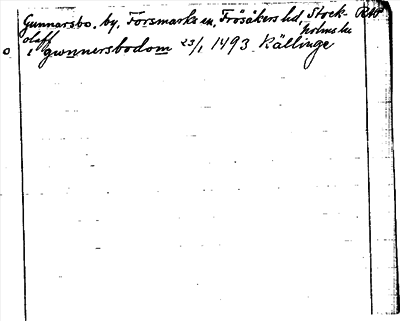 Gunnarsbo, by, Forsmarks sn, Frösåkers hd, Stock- RAP
holms län
olaff
o i gwnnersbodom 23/1 1493 Källinge